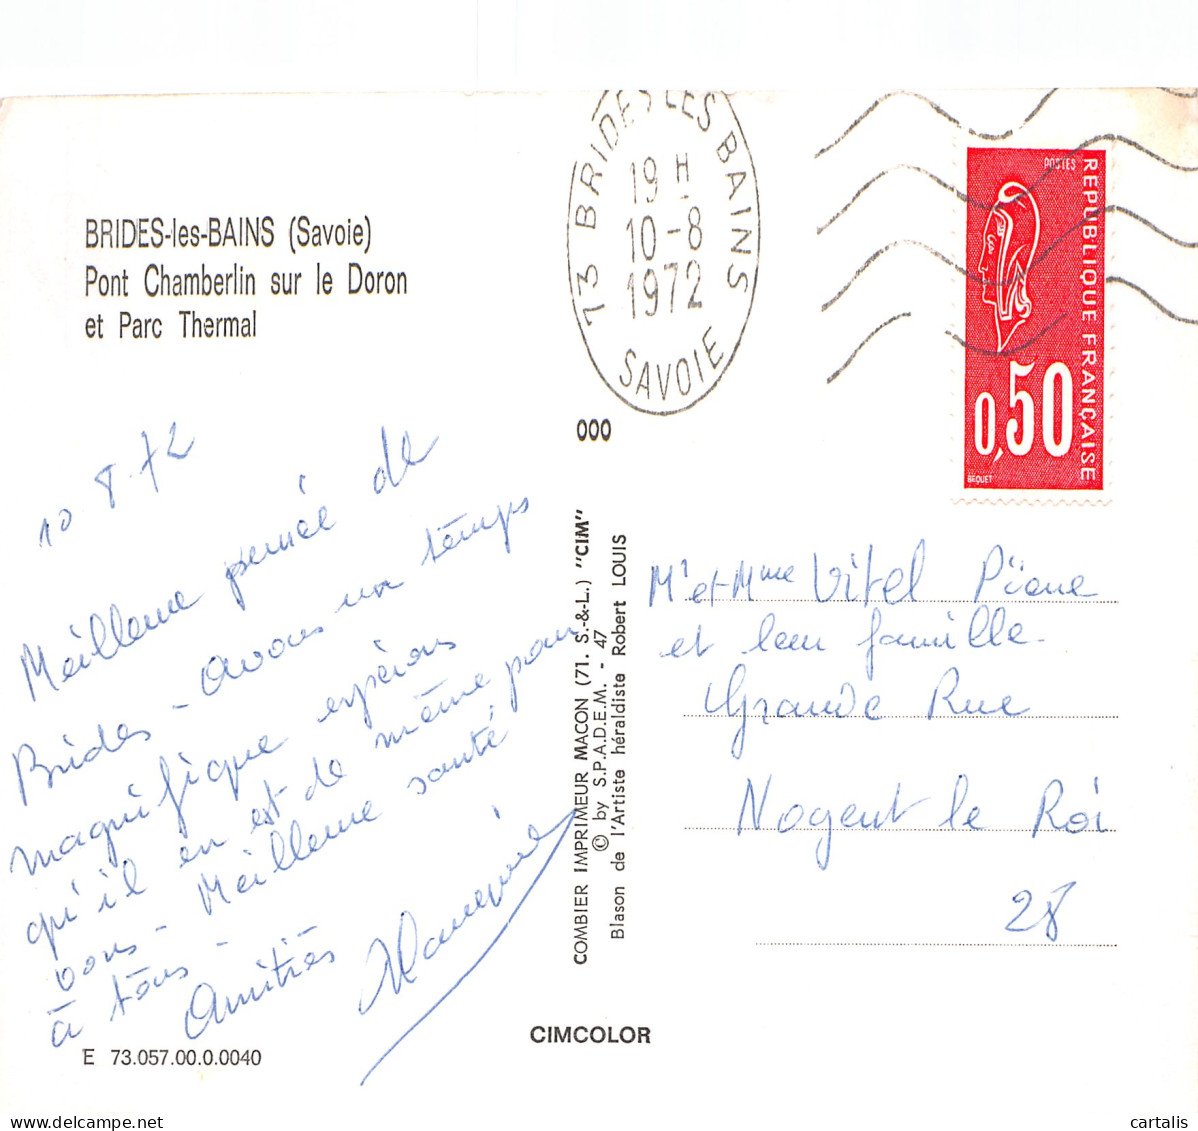 BRIDES-les-BAINS (Savoie)
Pont Chamberlin sur le Doron
et Parc Thermal
73 BRIDES LES BAINS
19 H
10-8
1972
SAVOIE
POSTES
REPUBLIQUE FRANÇAISE
0,50
BEQUET
000
10.8.72
Meilleure pensée de
Brides - avons un temps
magnifique espérons
qu'il en est de même pour
vous - Meilleure santé
à tous -
Amitiés
COMBIER IMPRIMEUR MACON (71. S.-&-L.) "CIM"
© by S.P.A.D.E.M. - 47
Blason de l'Artiste héraldiste Robert LOUIS
Mr et Mme Vitel
et leur famille
Grande Rue
Nogent le Roi
28
CIMCOLOR
E 73.057.00.0.0040
cartalis